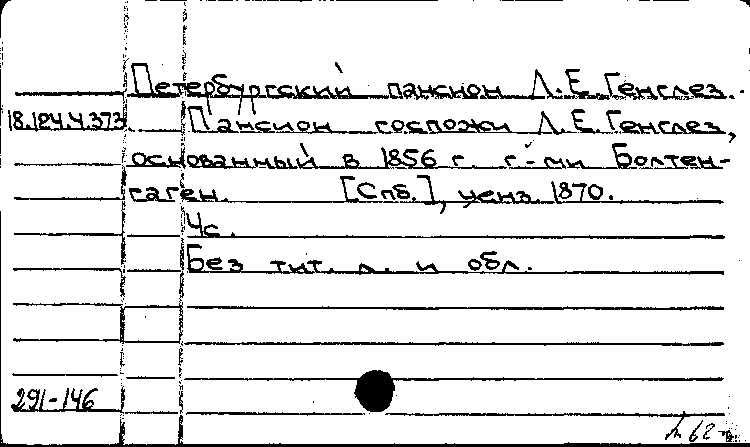 Петербургский пансион Л.Е.Генглез.
18.124.4.373 Пансион госпожи Л.Е.Генглез,
основанный в 1856 г. г-ми Болтен-
гаген. [Спб.], ценз. 1870.
4с.
Без тит. л. и обл.
291-146